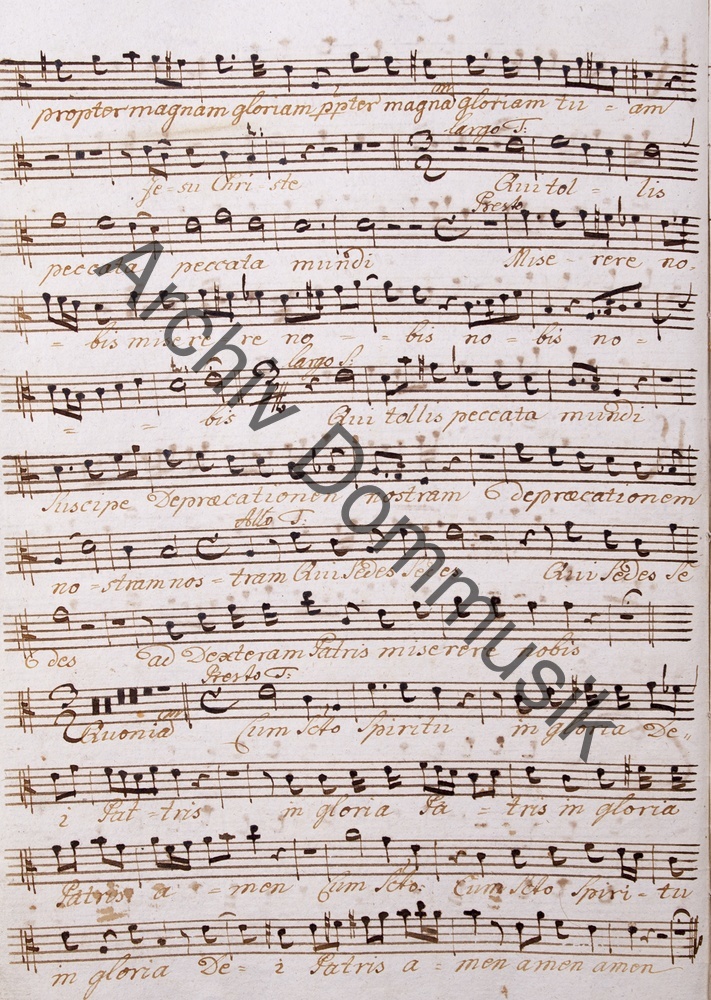 propter magnam gloriam ppter magnā gloriam tu - am
largo T:
Je - su Chri - ste Qui tol - lis
Presto
peccata peccata mundi Mise - rere no -
- bis misere re no - - bis no - bis no -
largo S:
- - bis Qui tollis peccata mundi
Suscipe Depræcationem nostram & depræcationem
Allo T:
no - stram nos - tram Qui Sedes Sedes Qui Sedes Se
des ad Dexteram Patris miserere nobis
Presto T:
Quoniam Cum Scto Spiritu in gloria De -
i Pat - tris in gloria Pa - tris in gloria
Patris a - men Cum Scto: Cum Scto Spiri - tu
in gloria De - i Patris a - men amen amen
Archiv Dommusik